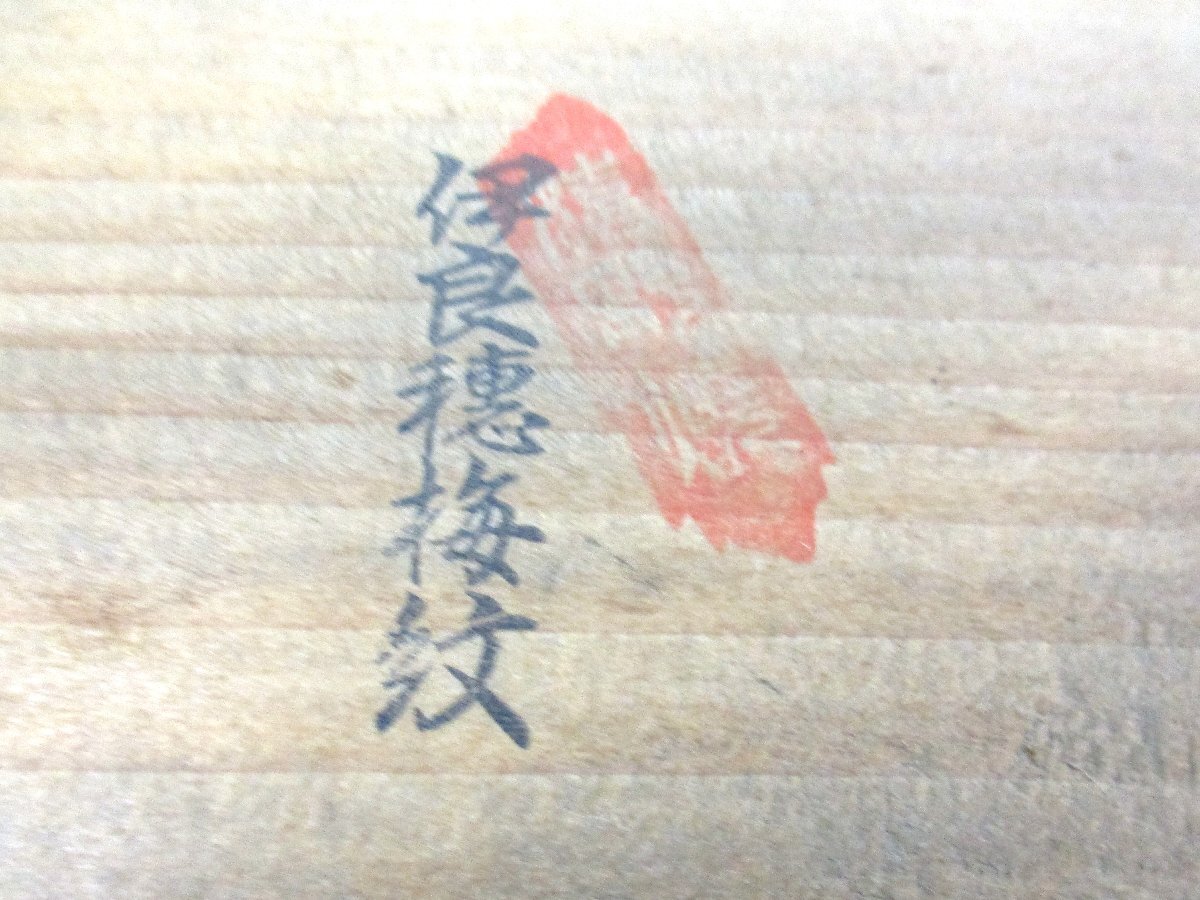 伊良穗梅紋